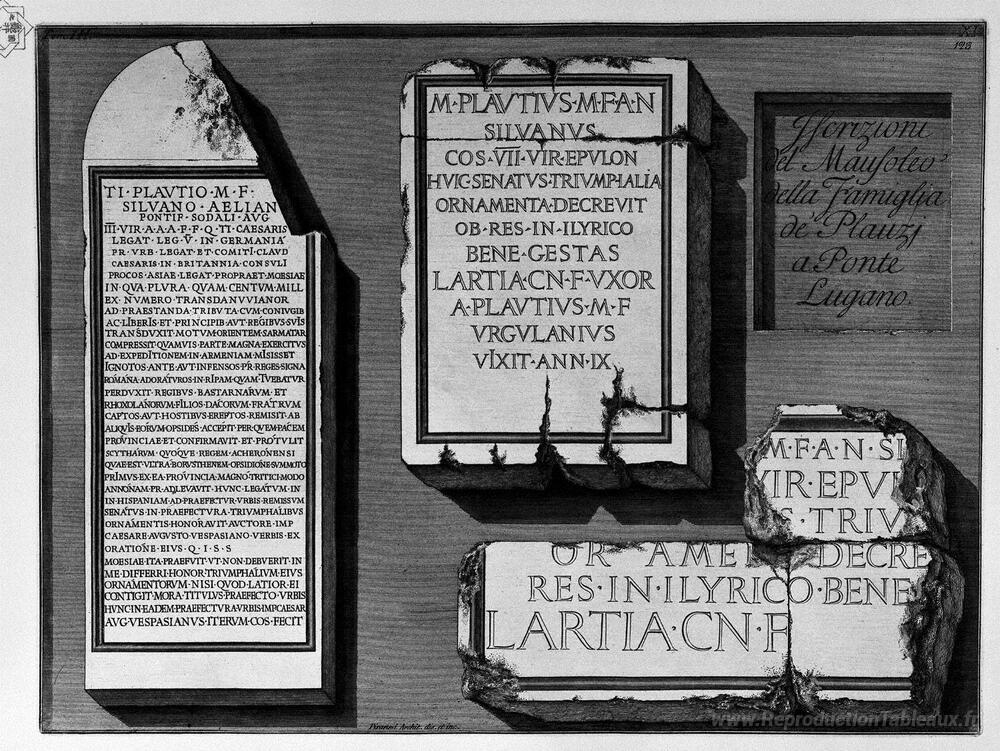 XI
128
TI·PLAVTIO·M·F·
SILVANO·AELIAN
PONTIF·SODALI·AVG
III·VIR·A·A·A·F·F·Q·TI·CAESARIS
LEGAT·LEG·V·IN·GERMANIA
PR·VRB·LEGAT·ET·COMITI·CLAVD
CAESARIS·IN·BRITANNIA·CONSVLI
PROCOS·ASIAE·LEGAT·PROPRAET·MOESIAE
IN·QVA·PLVRA·QVAM·CENTVM·MILL
EX·NVMERO·TRANSDANVVIANOR
AD·PRAESTANDA·TRIBVTA·CVM·CONIVGIB
AC·LIBERIS·ET·PRINCIPIB·AVT·REGIBVS·SVIS
TRANSDVXIT·MOTVM·ORIENTEM·SARMATAR
COMPRESSIT·QVAMVIS·PARTE·MAGNA·EXERCITVS
AD·EXPEDITIONEM·IN·ARMENIAM·MISISSET
IGNOTOS·ANTE·AVT·INFENSOS·P·R·REGES·SIGNA
ROMANA·ADORATVROS·IN·RIPAM·QVAM·TVEBATVR
PERDVXIT·REGIBVS·BASTARNARVM·ET
RHOXOLANORVM·FILIOS·DACORVM·FRATRVM
CAPTOS·AVT·HOSTIBVS·EREPTOS·REMISIT·AB
ALIQVIS·EORVM·OPSIDES·ACCEPIT·PER·QVEM·PACEM
PROVINCIAE·ET·CONFIRMAVIT·ET·PROTVLIT
SCYTHARVM·QVOQVE·REGEM·ACHERONENSI
QVAE·EST·VLTRA·BORVSTHENEM·OPSIDIONE·SVMMOTO
PRIMVS·EX·EA·PROVINCIA·MAGNO·TRITICI·MODO
ANNONAM·P·R·ADLEVAVIT·HVNC·LEGATVM·IN
IN·HISPANIAM·AD·PRAEFECTVR·VRBIS·REMISSVM
SENATVS·IN·PRAEFECTVRA·TRIVMPHALIBVS
ORNAMENTIS·HONORAVIT·AVCTORE·IMP
CAESARE·AVGVSTO·VESPASIANO·VERBIS·EX
ORATIONE·EIVS·Q·I·S·S
MOESIAE·ITA·PRAEFVIT·VT·NON·DEBVERIT·IN
ME·DIFFERRI·HONOR·TRIVMPHALIVM·EIVS
ORNAMENTORVM·NISI·QVOD·LATIOR·EI
CONTIGIT·MORA·TITVLVS·PRAEFECTO·VRBIS
HVNC·IN·EADEM·PRAEFECTVRA·VRBIS·IMP·CAESAR
AVG·VESPASIANVS·ITERVM·COS·FECIT
M·PLAVTIVS·M·F·A·N
SILVANVS
COS·VII·VIR·EPVLON
HVIC·SENATVS·TRIVMPHALIA
ORNAMENTA·DECREVIT
OB·RES·IN·ILYRICO
BENE·GESTAS
LARTIA·CN·F·VXOR
A·PLAVTIVS·M·F
VRGVLANIVS
VIXIT·ANN·IX
Iscrizioni
del Mausoleo
della Famiglia
de' Plauzj
a Ponte
Lugano
M·F·A·N·SI
VIR·EPV
S·TRIV
OR AME DECRE
RES·IN·ILYRICO·BENE
LARTIA·CN·F
Piranesi Archit. dis. et inc.
www.ReproductionTableaux.fr